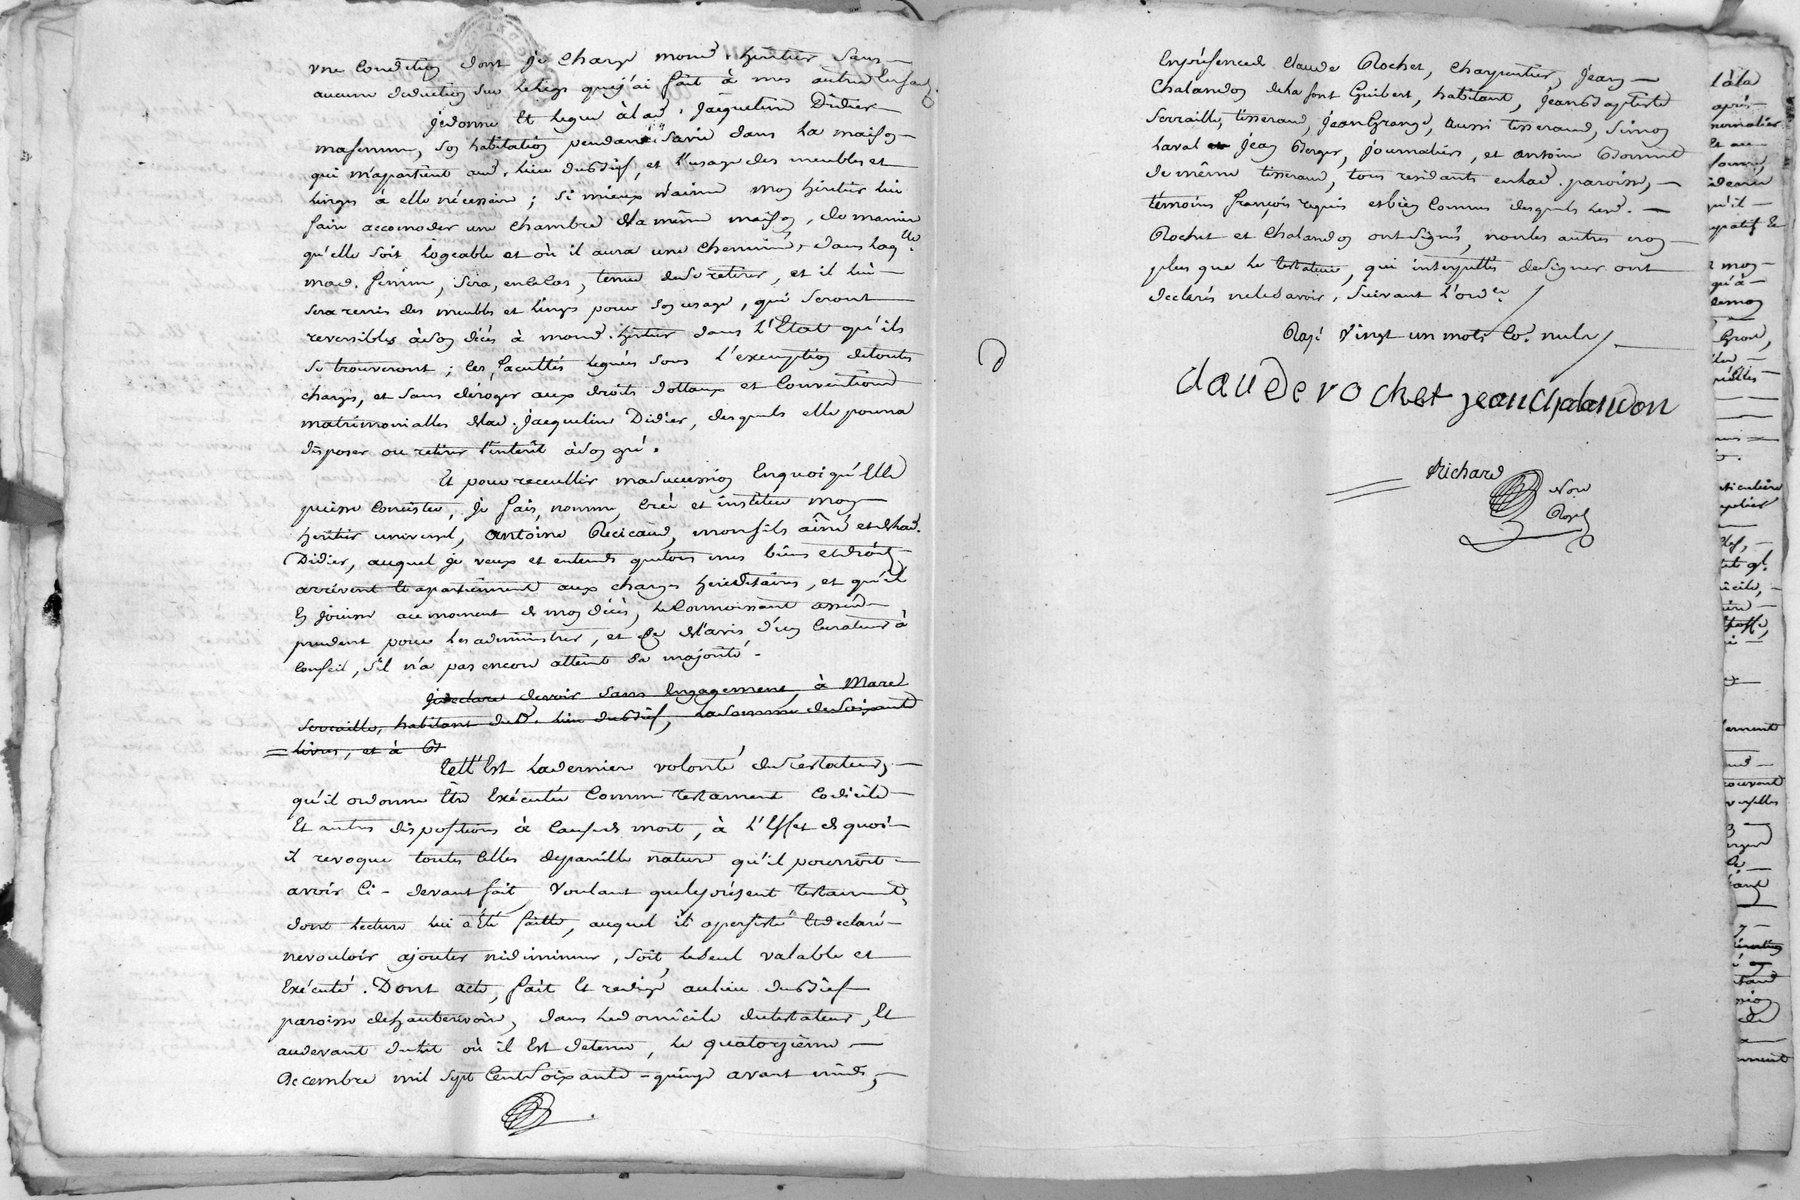 une condition dont je charge mond. héritier sans
aucune deduction sur le legs que j'ai fait à mes autres enfans.
Je donne et legue à lad. Jacqueline Didier
ma femme, son habitation pendant sa vie dans la maison
qui m'apartient aud. lieu du Bief, et l'usage des meubles et
linges à elle nécessaire ; si mieux n'aime mon héritier lui
faire accomoder une chambre de la même maison, de maniere
qu'elle soit logeable et où il aura une cheminé, dans laq.lle
mad. femme, sera, en ce cas, tenue de se retirer, et il lui
sera remis des meubles et linges pour son usage, qui seront
reversibles à son décès à mond. héritier dans l'Etat qu'ils
se trouveront ; les facultés leguées sous l'exemption de toutes
charges, et sans déroger aux droits dottaux et Conventions
matrimonialles de lad. Jacqueline Didier, desquels elle pourra
disposer ou retirer l'interêt à son gré.
Et pour receullir ma succession En quoi qu'Elle
puisse Consister, Je fais, nomme, Crée et institue mon
héritier universel, Antoine Recicaud, mon fils aîné et de lad.
Didier, auquel je veux et entends que tous mes biens et droits
arrivent et apartiennent aux charges héréditaires, et qu'il
En jouisse au moment de mon décès, le Connoissant assés
prudent pour les administrer, et de l'avis d'un Curateur à
Conseil, s'il n'a pas encore atteint sa majorité.
Je declare devoir sans Engagement, à Marc
Serraille, habitant dud. lieu du Bief, la somme de soixante
livres, et à
Telle Est la derniere volonté du Testateur,
qu'il ordonne Etre Exécutée Comme Testament Codicile
Et autres dispositions à Cause de mort, à l'Effet de quoi
il revoque toutes Celles de pareille nature qu'il pourroit
avoir Ci-devant fait, Voulant que le présent Testament,
dont lecture lui a été faitte, auquel il a persisté Et declaré
ne vouloir ajouter ni diminuer, soit le seul valable et
Exécuté. Dont acte, fait Et redigé au lieu du Bief
paroisse de hauterivoire, dans le domicile du testateur, Et
au devant du lit où il Est detenu, le quatorzième
Decembre mil sept Cent Soixante-quinze avant midi,
En présence de Claude Rochet, Charpentier, Jean
Chalandon de la font Guibert, habitant, Jean Baptiste
Serraille, tisserand, Jean Grange, aussi tisserand, Simon
Laval Jean Berger, journaliers, et Antoine
de même tisserand, tous residants en lad. paroisse,
temoins françois requis et bien Connus desquels lesd.
Rochet et Chalandon ont signés, non les autres non
plus que le testateur, qui interpellés de signer ont
declarés ne le savoir, suivant l'ord.ce
Rayé Vingt un mots Co. nuls
Claude rochet jean Chalandon
Richard
Nore
Royl